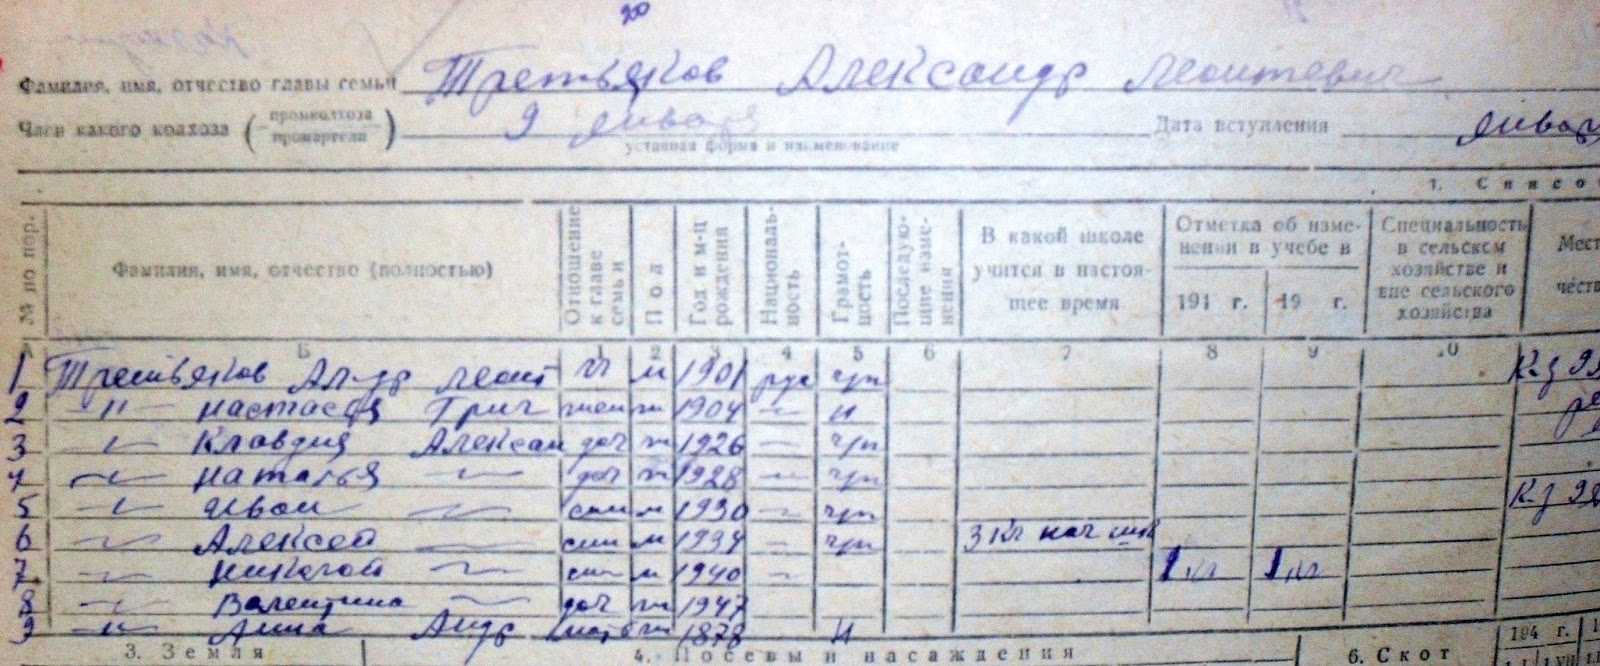 20
Фамилия, имя, отчество главы семьи Третьяков Александр Леонтевич
Член какого колхоза (промколхоза промартели) 9 Января Дата вступления январ
уставная форма и наименование
1. Список
№ по пор. Фамилия, имя, отчество (полностью) Отношение к главе семьи Пол Год и м-ц рождения Националь-ность Грамот-ность Последую-щие изме-нения В какой школе учится в настоя-щее время Отметка об изме-нении в учебе в 191 г. 19 г. Специальность в сельском хозяйстве и вне сельского хозяйства Мест честв
А Б 1 2 3 4 5 6 7 8 9 10
1 Третьяков Ал-др Леонт гл м 1901 рус гр К-з 9Я
2 -"- Настасья Григ жен ж 1904 - н
3 -"- Клавдия Алексан доч ж 1926 - гр
4 -"- Наталья -"- доч ж 1928 - гр
5 -"- Иван -"- сын м 1930 - гр К-з 9Я
6 -"- Алексей -"- сын м 1934 - гр 3 кл нач шк
7 -"- Николай -"- сын м 1940 - 1 кл 1 кл
8 -"- Валентина -"- доч ж 1947
9 -"- Анна Андр мать ж 1878 н
3. Земля 4. Посевы и насаждения 6. Скот 194 г.